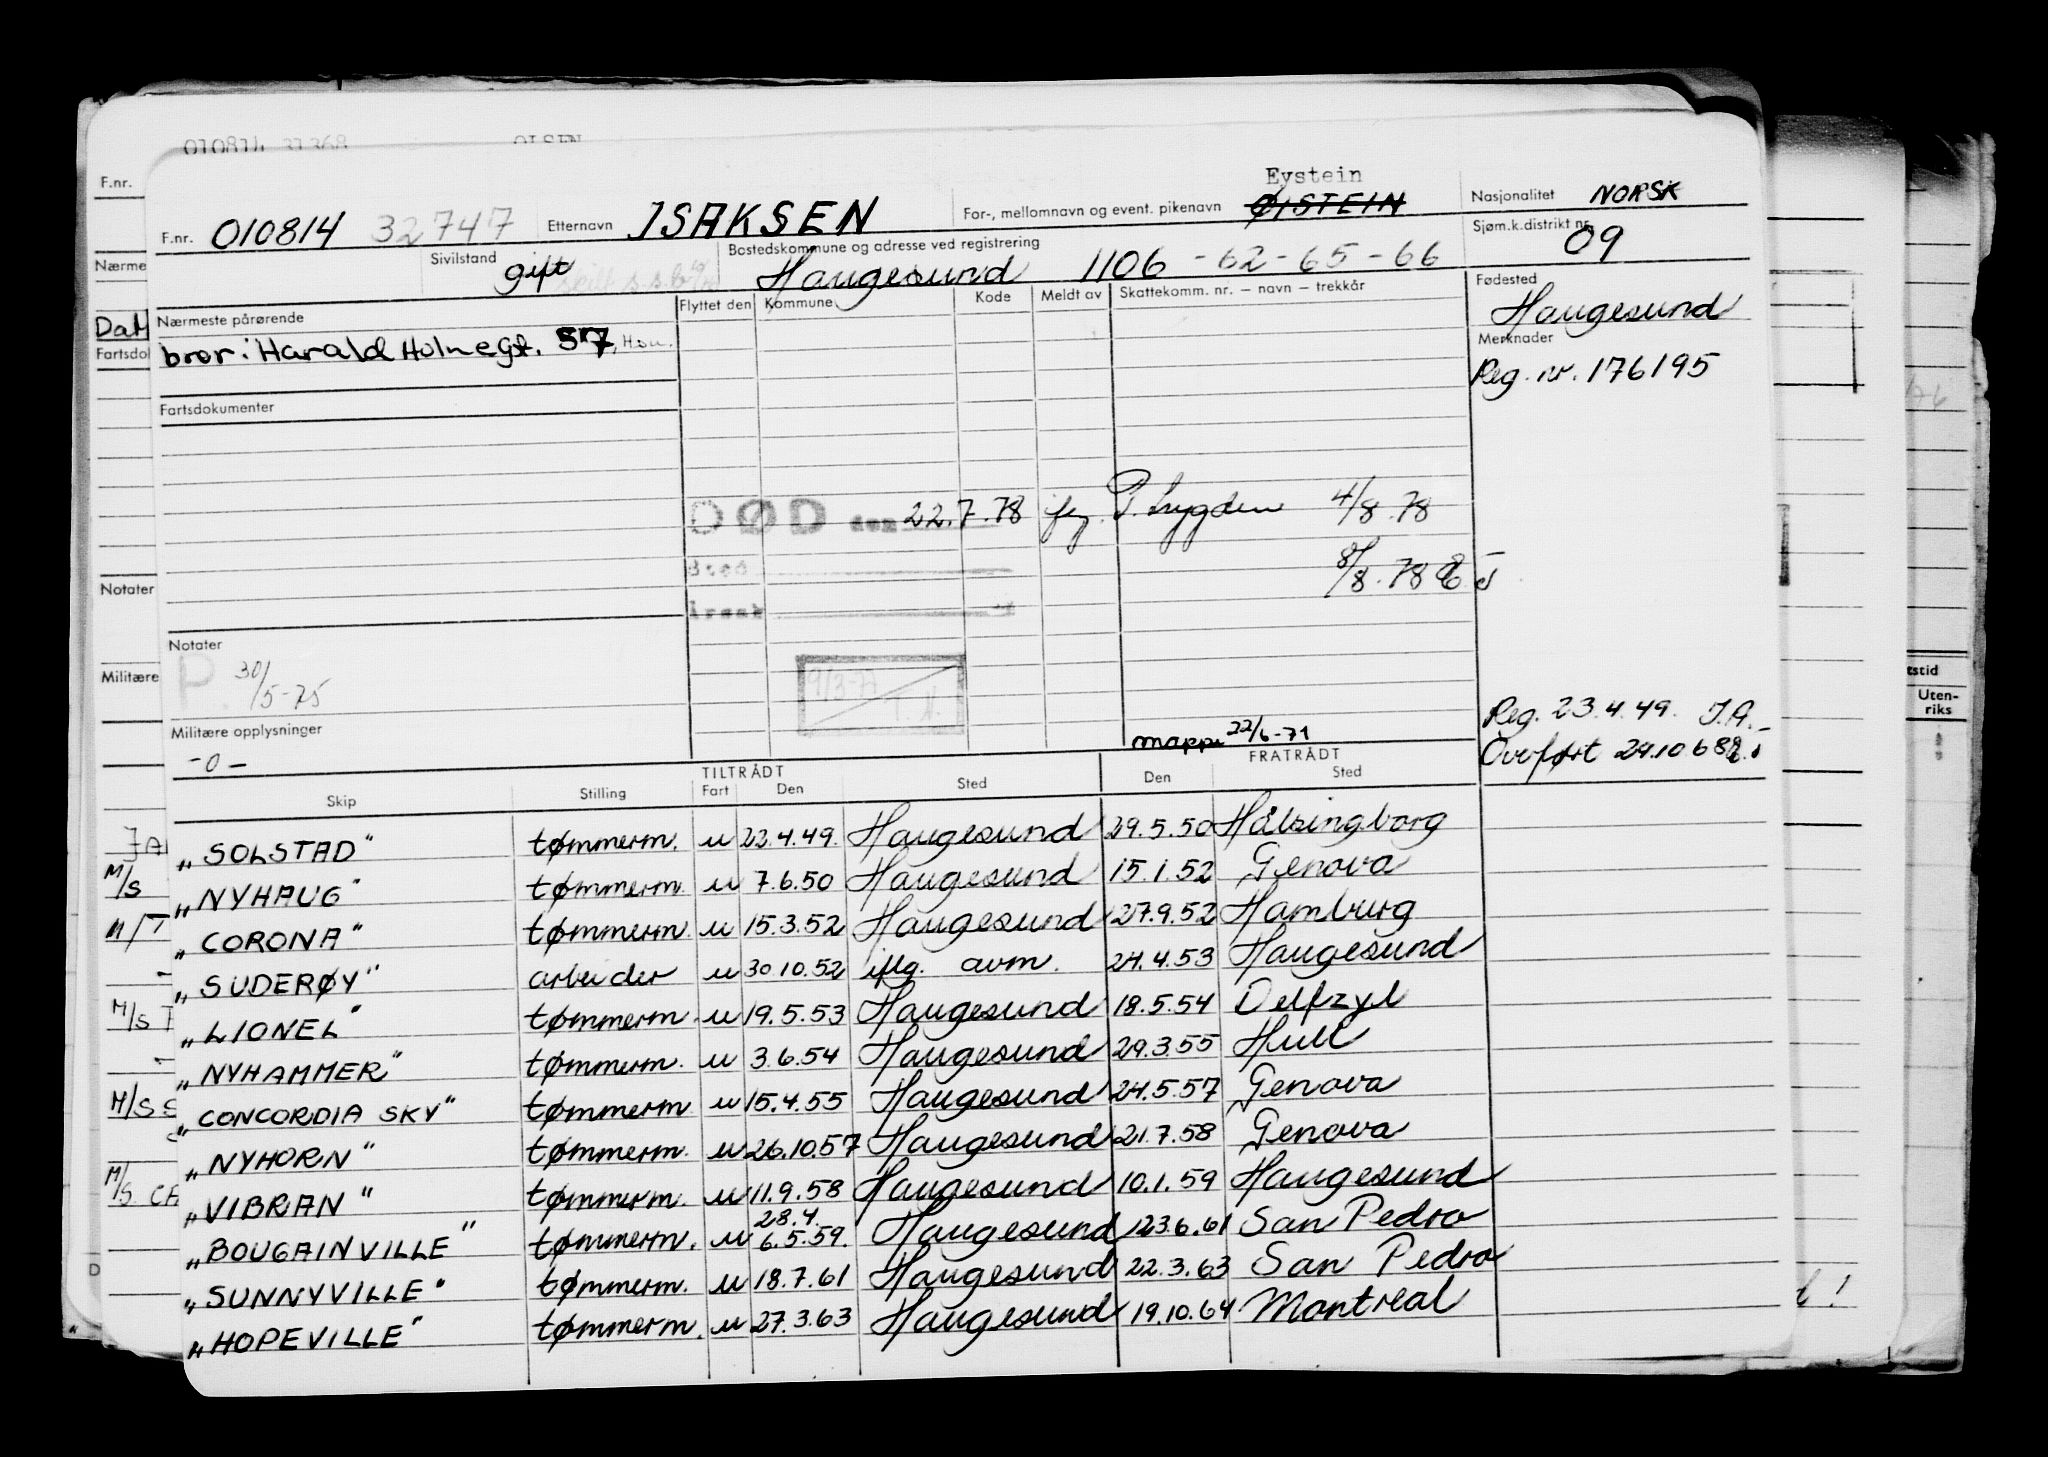 010814 31368 OLSEN
F.nr. 010814 32747 Etternavn ISAKSEN For-, mellomnavn og event. pikenavn Eystein ØISTEIN Nasjonalitet NORSK
Sivilstand gift Bostedskommune og adresse ved registrering Haugesund 1106 - 62 - 65 - 66 Sjøm.k.distrikt nr. 09
Nærmeste pårørende Flyttet den Kommune Kode Meldt av Skattekomm. nr. — navn — trekkår Fødested Haugesund
bror: Harald Holmegt. 57, Hsu. Merknader
Reg. nr. 176195
Fartsdokumenter
DØD den 22.7.78 4/8.78
8/8.78
Sted
Årsak
Notater
P. 30/5-75
9/3-77
Militære opplysninger
-0-
mappe 22/6-71
Reg. 23.4.49. J.A.
Overført 24.10.68
TILTRÅDT FRATRÅDT
Skip Stilling Fart Den Sted Den Sted
„SOLSTAD" tømmerm. u 22.4.49. Haugesund 29.5.50 Hälsingborg
„NYHAUG" tømmerm u 7.6.50 Haugesund 15.1.52 Genova
„CORONA" tømmerm. u 15.3.52 Haugesund 27.9.52 Hamburg
„SUDERØY" arbeider u 30.10.52 iflg. avm. 24.4.53 Haugesund
„LIONEL" tømmerm. u 19.5.53 Haugesund 18.5.54 Delfzyl
„NYHAMMER" tømmerm. u 3.6.54 Haugesund 29.3.55 Hull
„CONCORDIA SKY" tømmerm u 15.4.55 Haugesund 24.5.57 Genova
„NYHORN" tømmerm. u 26.10.57 Haugesund 21.7.58 Genova
„VIBRAN" tømmerm. u 11.9.58 Haugesund 10.1.59 Haugesund
„BOUGAINVILLE" tømmerm. u 28.4. 6.5.59. Haugesund 23.6.61 San Pedro
„SUNNYVILLE" tømmerm. u 18.7.61 Haugesund 22.3.63 San Pedro
„HOPEVILLE" tømmerm. u 27.3.63 Haugesund 19.10.64 Montreal
F.nr.
Nærme
Notater
Militære
M/S
M/T
M/S
M/S S
M/S
tstid
Uten-
riks